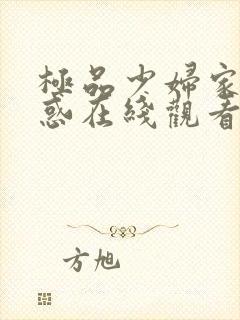 極品少婦家
惑在綫觀看
方旭